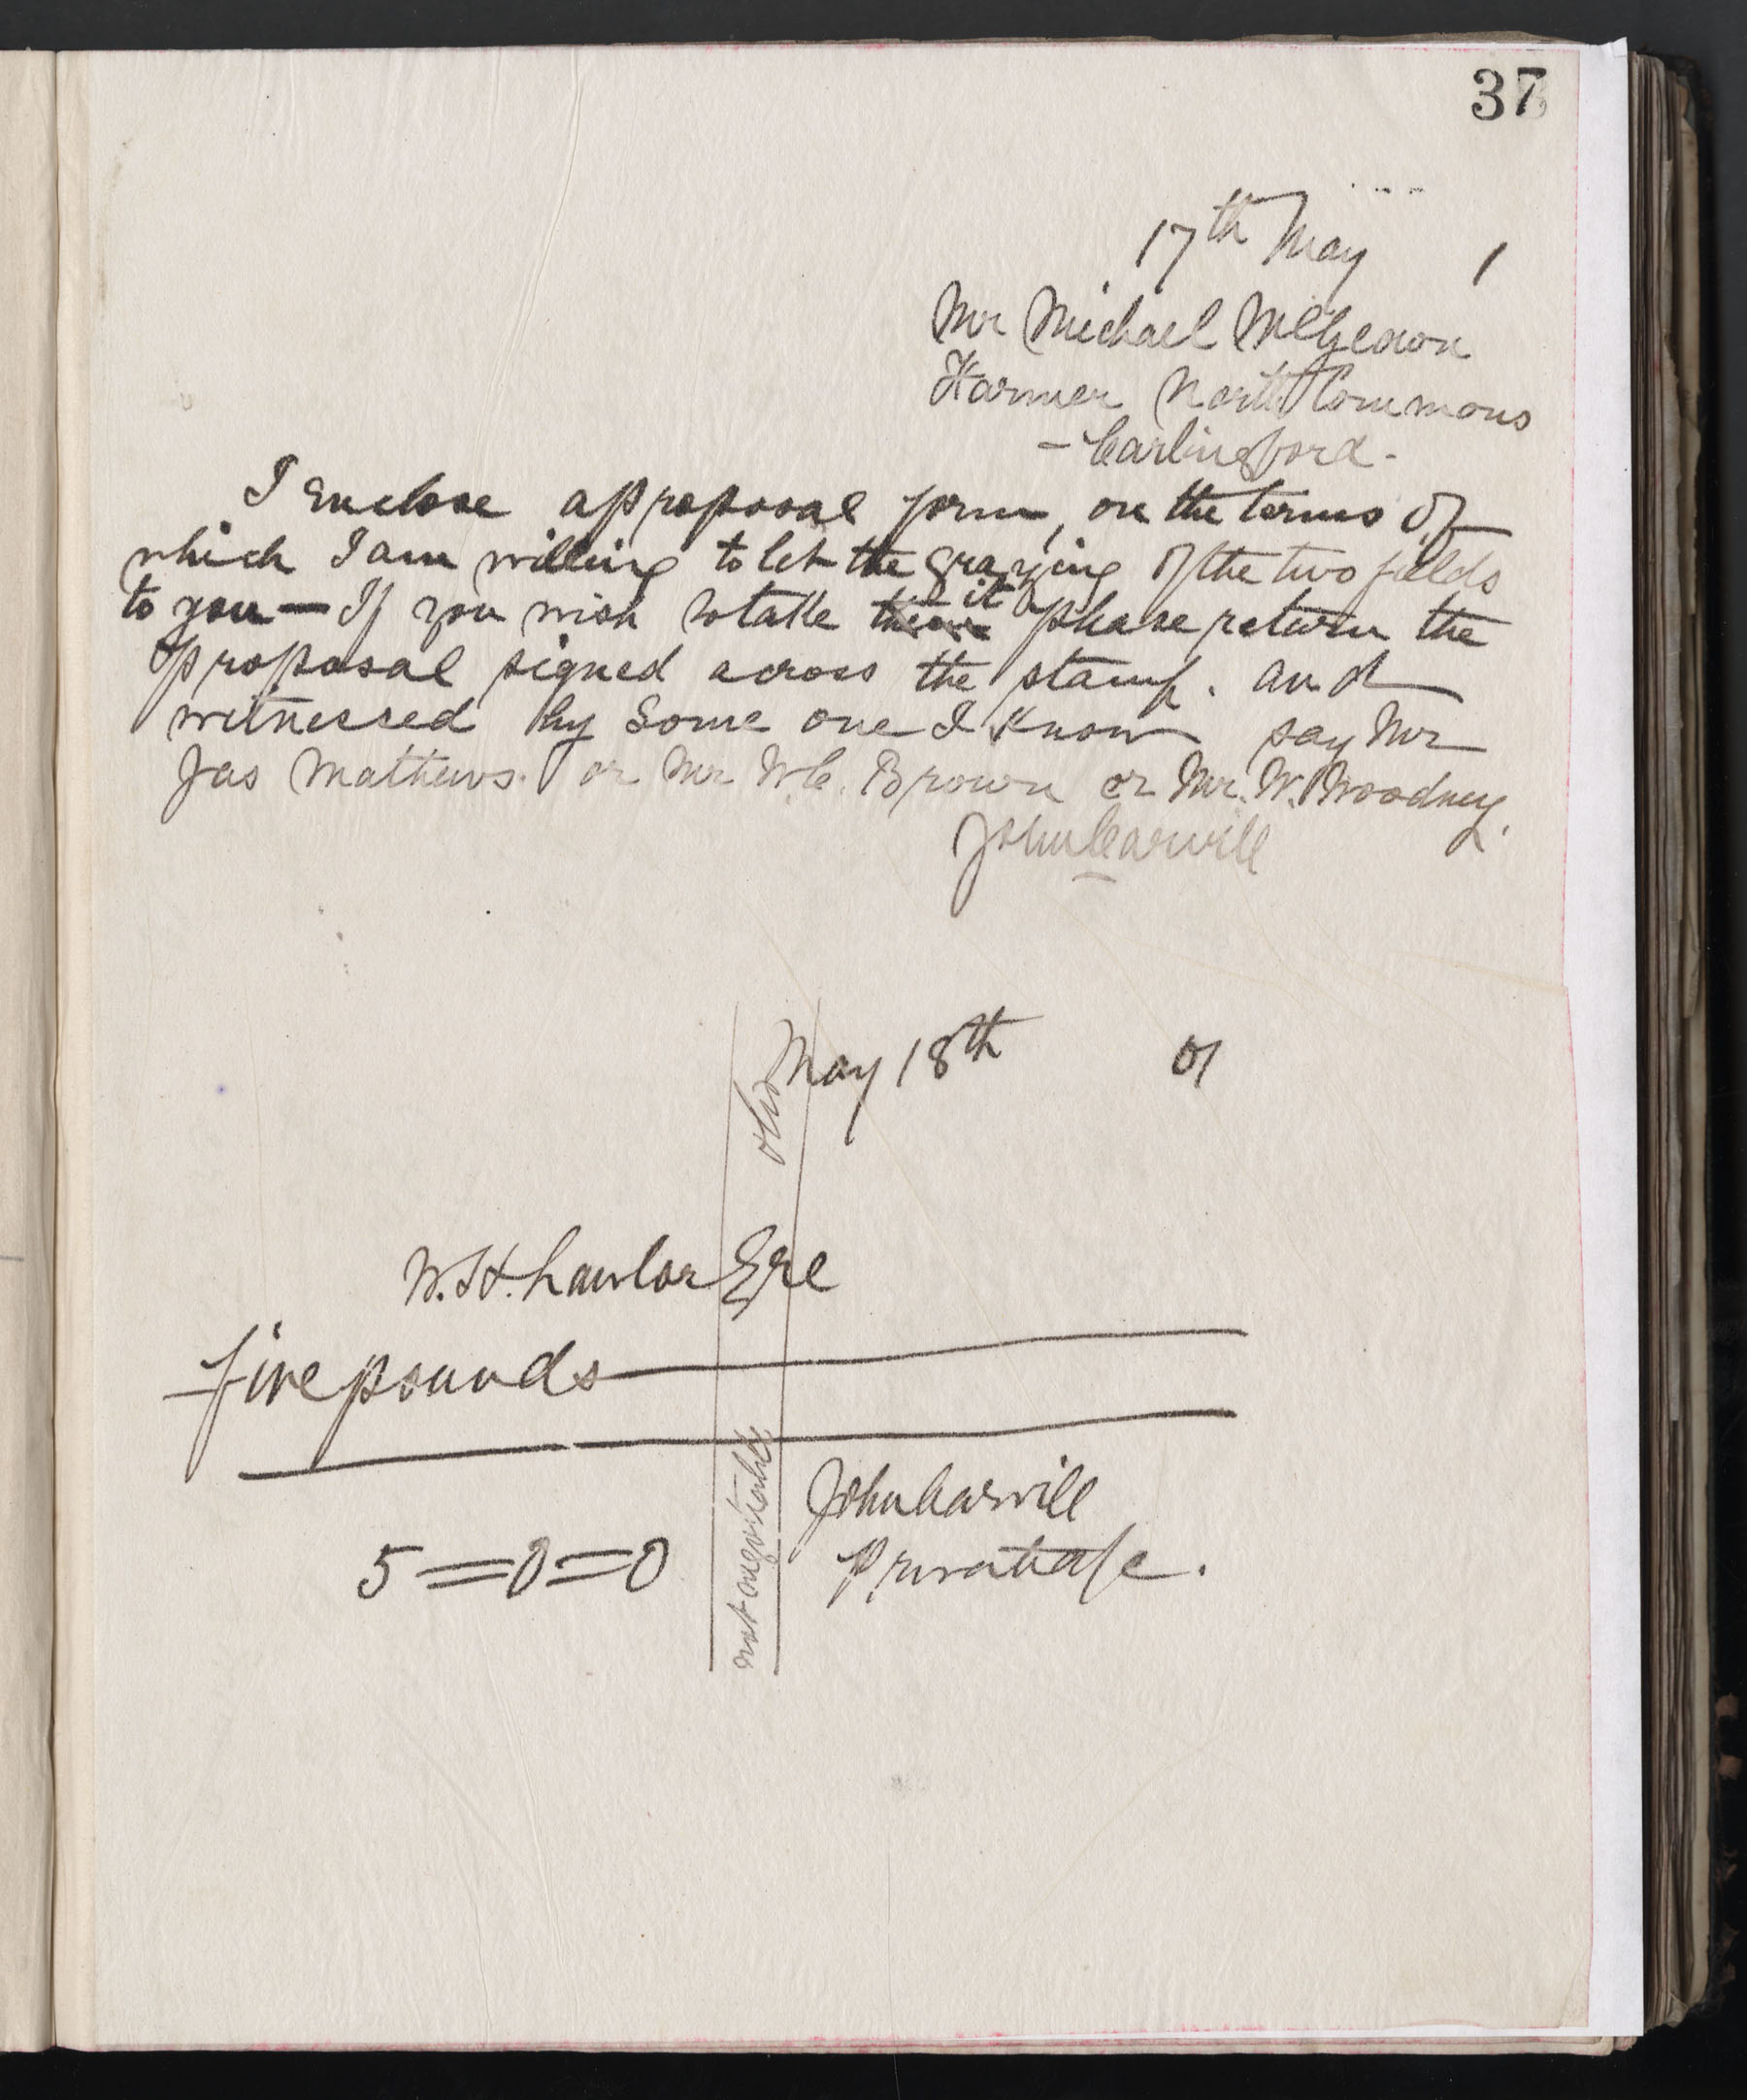 37
17th May 1
Mr Michael McGeown
Farmer North Commons
- Carlingford -
I enclose a proposal form, on the terms of
which I am willing to let the grazing of the two fields
to you — If you wish to take them it please return the
proposal signed across the stamp. and
witnessed by Some one I know say Mr
Jas Mathews. or Mr W.C. Brown or Mr. W. Woodney.
John Carvill
May 18th 01
W. H. Lawlor Esre
five pounds
John Carvill
Private a/c.
5=0=0
not negotiable